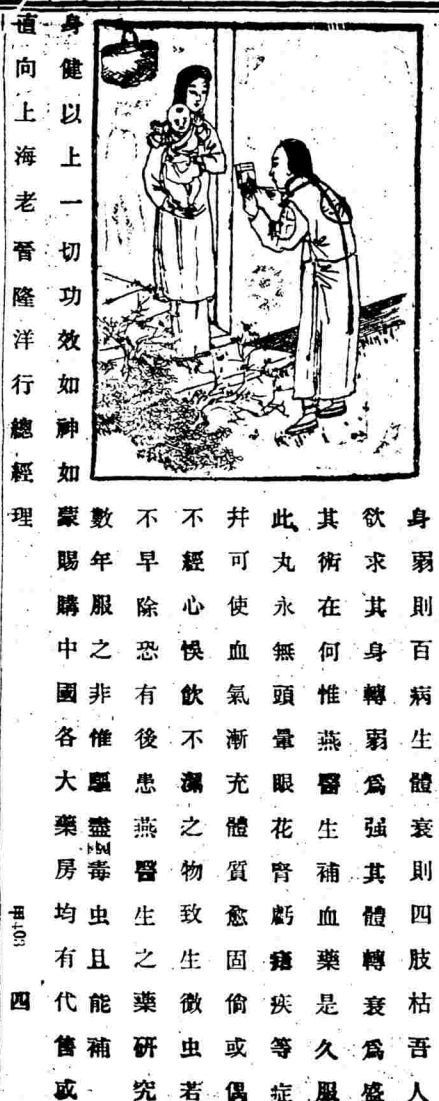 身弱則百病生體衰則四肢枯吾人
欲求其身轉弱爲强其體轉衰爲盛
其術在何惟燕醫生補血藥是久服
此丸永無頭暈眼花腎虧疾等症
并可使血氣漸充體質愈固倘或偶
不經心悞飲不潔之物致生微虫若
不早除恐有後患燕醫生之藥研究
數年服之非惟驅盡毒虫且能補
身健以上一切功效如神如蒙賜購中國各大藥房均有代售或
直向上海老晉隆洋行總經理
四